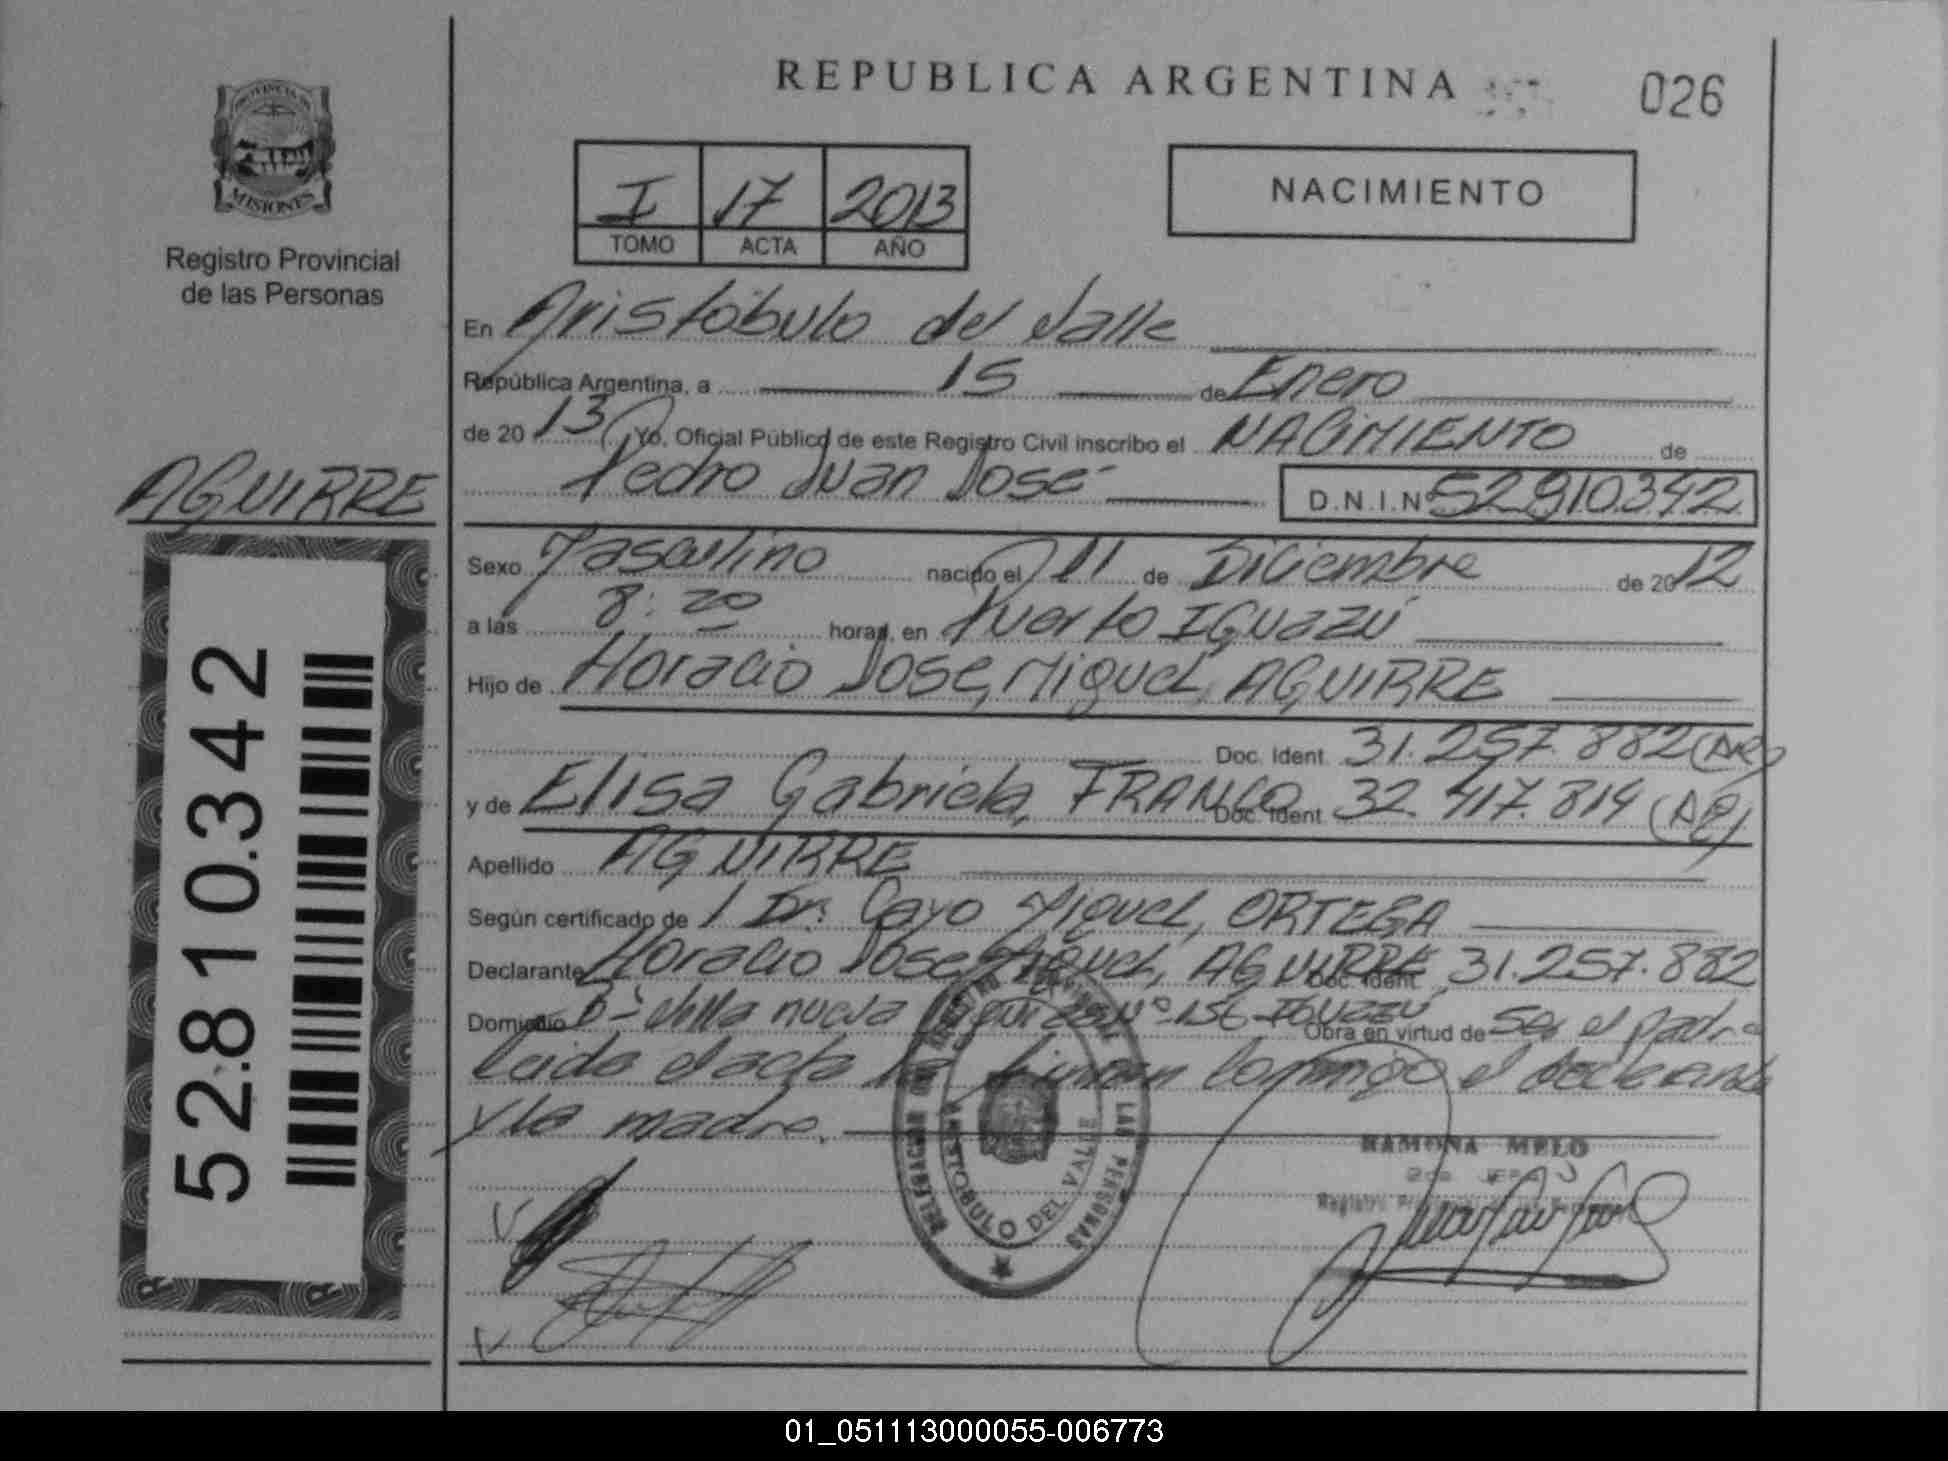 REPUBLICA ARGENTINA
026
PROVINCIA DE
MISIONES
Registro Provincial
de las Personas
I 17 2013
TOMO ACTA AÑO
NACIMIENTO
En Aristóbulo del Valle
República Argentina, a 15 de Enero
de 2013 Yo, Oficial Público de este Registro Civil inscribo el NACIMIENTO de
Pedro Juan José D.N.I.Nº 52810342
AGUIRRE
52.810.342
Sexo Masculino nacido el 11 de Diciembre de 2012
a las 8:20 horas, en Puerto IGuazú
Hijo de Horacio José Miguel, AGUIRRE
Doc. Ident. 31.257.882 (AR)
y de Elisa Gabriela, FRANCO Doc. Ident. 32.417.814 (AR)
Apellido AGUIRRE
Según certificado de / Dr. Cayo Miguel, ORTEGA
Declarante Horacio José Miguel, AGUIRRE Doc. Ident. 31.257.882
Domicilio Bº Villa nueva Nº 156 IGUAZÚ Obra en virtud de Ser el padre
Leida el acta la firman conmigo el declarante
y la madre.
DELEGACION
LAS PERSONAS
ARISTOBULO DEL VALLE
RAMONA MELO
01_051113000055-006773